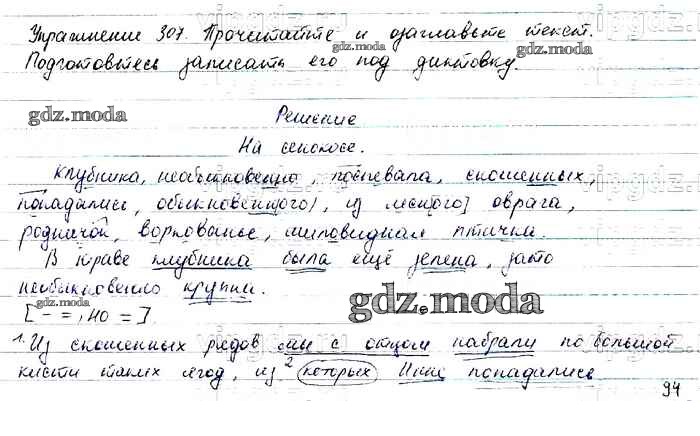 Упражнение 307. Прочитайте и озаглавьте текст.
Подготовьтесь записать его под диктовку.
gdz.moda
gdz.moda
gdz.moda
Решение
На сенокосе.
Клубника, необыкновенно, поспевала, скошенных,
попадались, обыкновенного, из лесного оврага,
родничок, воркованье, миловидная птичка.
В траве клубника была ещё зелена, зато
необыкновенно крупна.
[- =, но =]
gdz.moda
1. Из скошенных рядов мы с отцом набрали по большой
кисти таких ягод, из 2 которых иные попадались
94